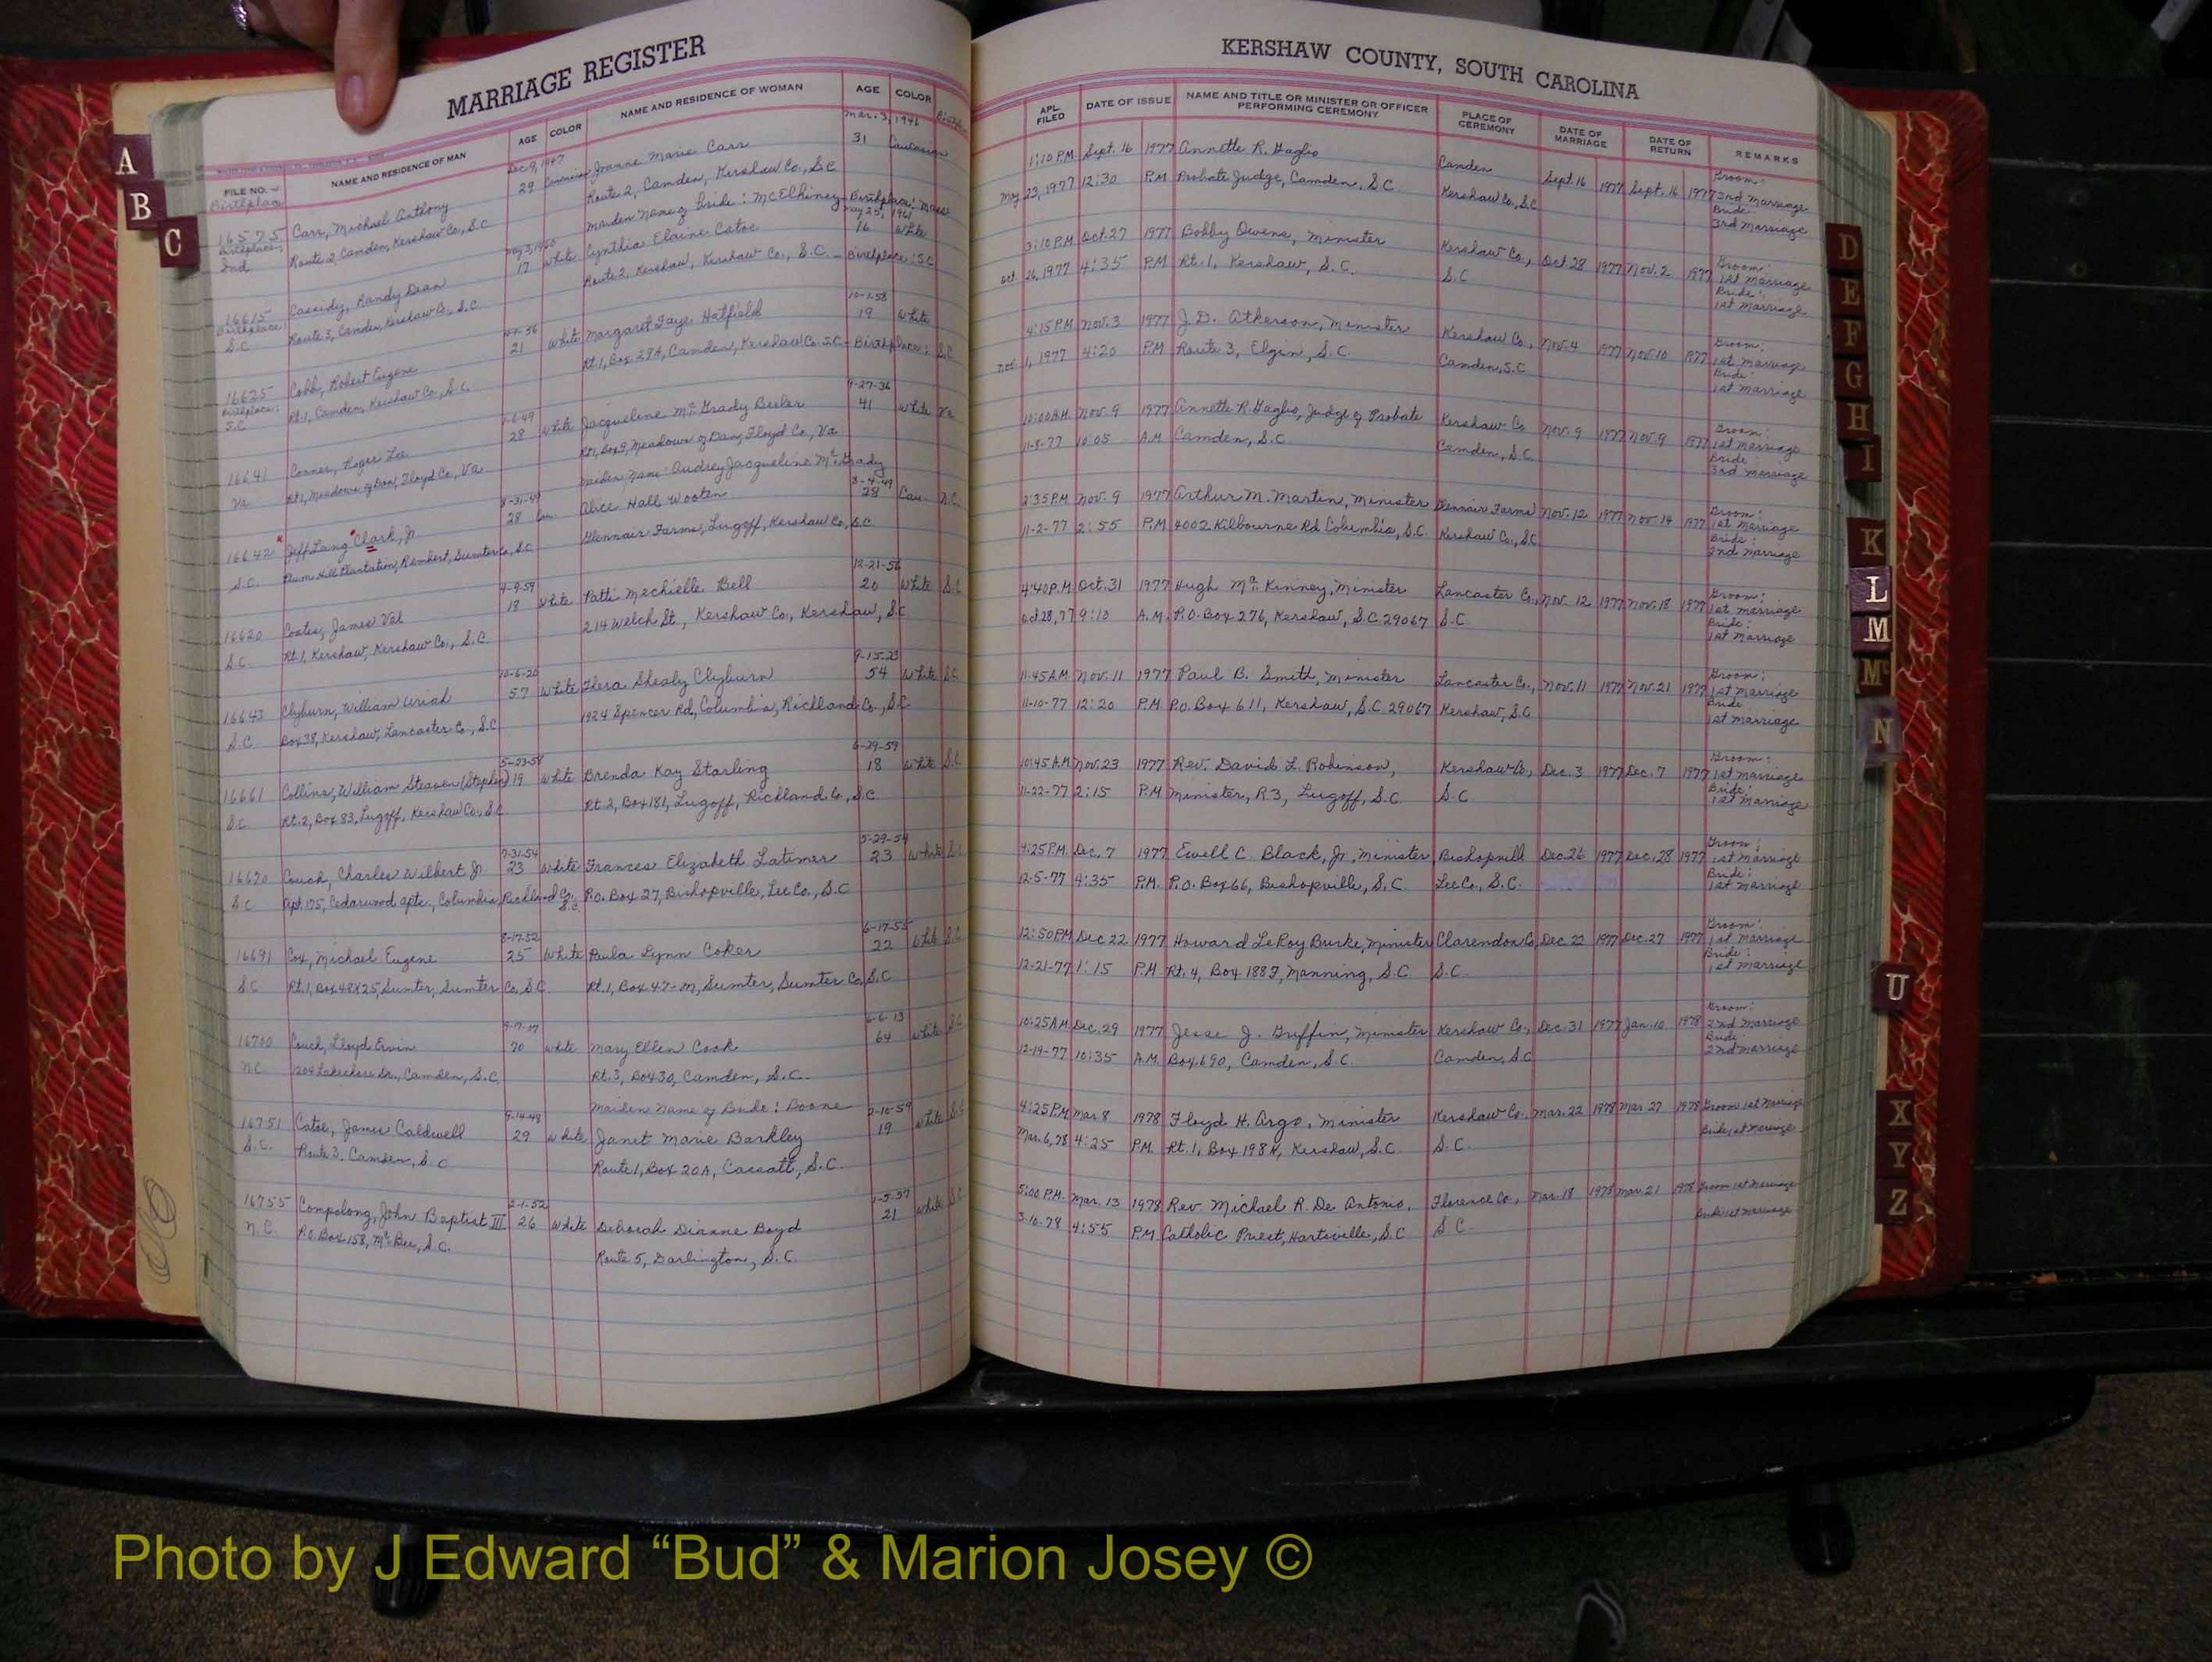 MARRIAGE REGISTER
NAME AND RESIDENCE OF MAN
AGE
COLOR
NAME AND RESIDENCE OF WOMAN
AGE
COLOR
FILE NO.
Birthplace
Dec 9, 1947
Mar. 3, 1946
16575 Carr, Michael Anthony 29 Caucasian Joanne Marie Carr 31 Caucasian
Birthplace: Ind. Route 2, Camden, Kershaw Co., S.C. Route 2, Camden, Kershaw Co., S.C.
Maiden Name of Bride: McElhiney - Birthplace: Mass
May 25, 1961
16615 Cassidy, Randy Dean 17 White Cynthia Elaine Catoe 16 White
Birthplace: S.C Route 3, Camden, Kershaw Co., S.C Route 2, Kershaw, Kershaw Co., S.C. - Birthplace: S.C
10-1-58
16625 Cobb, Robert Eugene 21 White Margaret Faye Hatfield 19 White
Birthplace: S.C Rt. 1, Camden, Kershaw Co., S.C. Rt. 1, Box 29A, Camden, Kershaw Co. S.C - Birthplace: S.C
1-6-49 9-27-36
16641 Conner, Roger Lee 28 White Jacqueline McGrady Beeler 41 White Va
Va. Rt 1, Meadows of Dan, Floyd Co., Va Rt 1, Box 9, Meadows of Dan, Floyd Co., Va
Maiden Name: Audrey Jacqueline McGrady
8-31-49 8-4-49
16642 Jeff Lang Clark, Jr 28 Cau. Alice Hall Wooten 28 Cau. N.C.
S.C. Plum Hill Plantation, Rembert, Sumter Co., S.C Glennair Farms, Lugoff, Kershaw Co., S.C
4-9-59 12-21-56
16620 Coates, James Val 18 White Patti Mechielle Bell 20 White S.C
S.C. Rt. 1, Kershaw, Kershaw Co., S.C. 214 Welch St., Kershaw Co., Kershaw, S.C
10-6-20 9-15-23
16643 Clyburn, William Uriah 57 White Thera Shealy Clyburn 54 White S.C
S.C Box 38, Kershaw, Lancaster Co., S.C 1924 Spencer Rd, Columbia, Richland Co., S.C.
5-23-58 6-29-59
16661 Collins, William Steaven (Stephen) 19 White Brenda Kay Starling 18 White S.C
S.C. Rt. 2, Box 83, Lugoff, Kershaw Co., S.C Rt. 2, Box 181, Lugoff, Richland Co., S.C.
7-31-54 5-29-54
16670 Couch, Charles Wilbert Jr. 23 White Frances Elizabeth Latimer 23 White S.C
S.C Apt. 175, Cedarwood Apts., Columbia, Richland Co., S.C. P.O. Box 27, Bishopville, Lee Co., S.C
8-17-52 6-17-55
16691 Cox, Michael Eugene 25 White Paula Lynn Coker 22 White S.C
S.C Rt. 1, Box 48X25, Sumter, Sumter Co., S.C Rt. 1, Box 47-M, Sumter, Sumter Co. S.C
6-6-13
16700 Couch, Lloyd Ervin 70 White Mary Ellen Cook 64 White S.C
N.C 1204 Lakeshore Dr., Camden, S.C. Rt. 3, Box 30, Camden, S.C.
Maiden Name of Bride: Boone
9-14-48 2-10-59
16751 Catoe, James Caldwell 29 White Janet Marie Barkley 19 White S.C
S.C. Route 3. Camden, S.C Route 1, Box 20A, Cassatt, S.C.
2-1-52 1-5-57
16755 Compolong, John Baptist III 26 White Deborah Dianne Boyd 21 White S.C
N.C P.O. Box 158, McBee, S.C. Route 5, Darlington, S.C.
KERSHAW COUNTY, SOUTH CAROLINA
APL. FILED
DATE OF ISSUE
NAME AND TITLE OR MINISTER OR OFFICER PERFORMING CEREMONY
PLACE OF CEREMONY
DATE OF MARRIAGE
DATE OF RETURN
REMARKS
1:10 P.M. Sept. 16 1977 Annette R. Gaglio Camden Sept 16 1977 Sept. 16 1977 Groom: 2nd Marriage
May 23, 1977 12:30 P.M Probate Judge, Camden, S.C. Kershaw Co., S.C Bride: 3rd Marriage
3:10 P.M Oct. 27 1977 Bobby Owens, Minister Kershaw Co., Oct 28 1977 Nov. 2 1977 Groom: 1st Marriage
Oct. 26, 1977 4:35 P.M Rt. 1, Kershaw, S.C. S.C Bride: 1st Marriage
4:15 P.M. Nov. 3 1977 J.D. Atkerson, Minister Kershaw Co., Nov. 4 1977 Nov. 10 1977 Groom: 1st Marriage
Nov. 1, 1977 4:20 P.M Route 3, Elgin, S.C. Camden, S.C Bride: 1st Marriage
10:00 A.M. Nov. 9 1977 Annette R. Gaglio, Judge of Probate Kershaw Co Nov. 9 1977 Nov. 9 1977 Groom: 1st Marriage
11-8-77 10:05 A.M Camden, S.C. Camden, S.C Bride 3rd Marriage
2:35 P.M Nov. 9 1977 Arthur M. Martin, Minister Glennair Farms Nov. 12 1977 Nov. 14 1977 Groom: 1st Marriage
11-2-77 2:55 P.M 4002 Kilbourne Rd Columbia, S.C. Kershaw Co., S.C Bride: 2nd Marriage
4:40 P.M. Oct. 31 1977 Hugh McKinney, Minister Lancaster Co., Nov. 12 1977 Nov. 18 1977 Groom: 1st Marriage
Oct 28, 77 9:10 A.M. P.O. Box 276, Kershaw, S.C. 29067 S.C Bride: 1st Marriage
11:45 A.M Nov. 11 1977 Paul B. Smith, Minister Lancaster Co., Nov. 11 1977 Nov. 21 1977 Groom: 1st Marriage
11-10-77 12:20 P.M P.O. Box 611, Kershaw, S.C 29067 Kershaw, S.C Bride 1st Marriage
10:45 A.M Nov. 23 1977 Rev. David L. Robinson, Kershaw Co, Dec. 3 1977 Dec. 7 1977 Groom: 1st Marriage
11-22-77 2:15 P.M Minister, R.3, Lugoff, S.C. S.C Bride: 1st Marriage
4:25 P.M. Dec. 7 1977 Ewell C. Black, Jr, Minister Bishopville Dec. 26 1977 Dec. 28 1977 Groom: 1st Marriage
12-5-77 4:35 P.M. P.O. Box 66, Bishopville, S.C. Lee Co., S.C. Bride: 1st Marriage
12:50 P.M Dec 22 1977 Howard LeRoy Burke, Minister Clarendon Co, Dec. 22 1977 Dec. 27 1977 Groom: 1st Marriage
12-21-77 1:15 P.M Rt. 4, Box 188F, Manning, S.C S.C. Bride: 1st Marriage
10:25 A.M Dec. 29 1977 Jesse J. Griffin, Minister Kershaw Co., Dec. 31 1977 Jan. 10 1978 Groom: 2nd Marriage
12-19-77 10:35 A.M. Box 690, Camden, S.C. Camden, S.C Bride 2nd Marriage
4:25 P.M Mar. 8 1978 Floyd H. Argo, Minister Kershaw Co., Mar. 22 1978 Mar. 27 1978 Groom 1st Marriage
Mar. 6, 78 4:25 P.M. Rt. 1, Box 198K, Kershaw, S.C S.C. Bride, 1st Marriage
5:00 P.M. Mar. 13 1978 Rev. Michael R. De Antonio, Florence Co., Mar. 18 1978 Mar. 21 1978 Groom 1st Marriage
3-10-78 4:55 P.M Catholic Priest, Hartsville, S.C S C. Bride 1st Marriage
A
B
C
D
E
F
G
H
I
K
L
M
Mc
N
U
X
Y
Z
Photo by J Edward “Bud” & Marion Josey ©